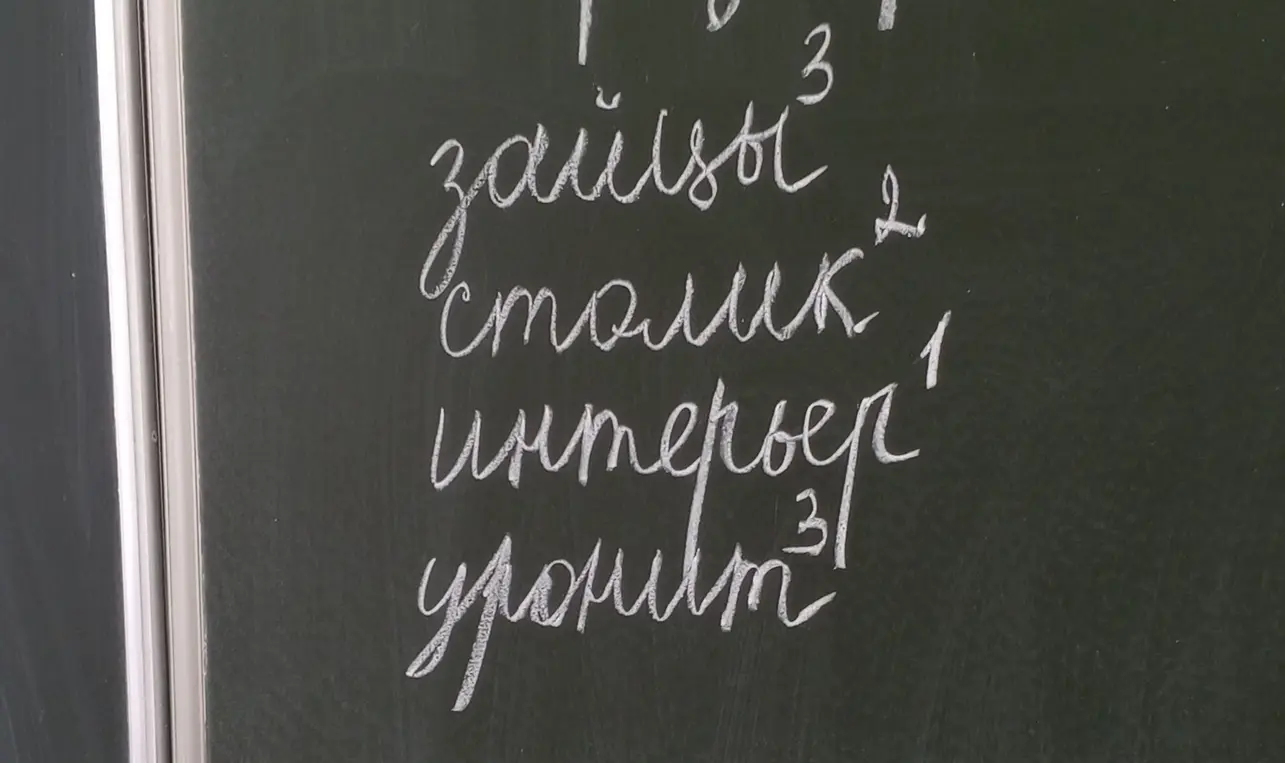 зайцы³
столик²
интерьер¹
уронит³